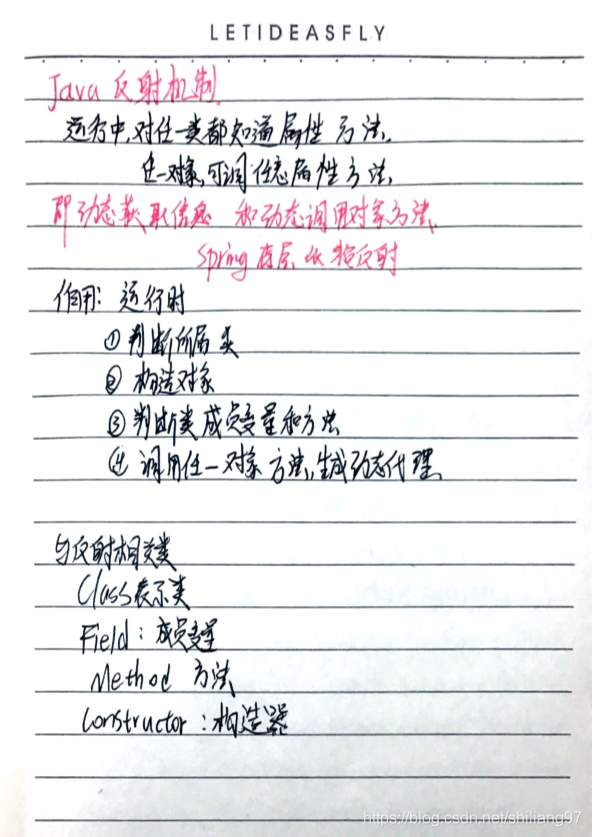 LETIDEASFLY
Java 反射机制.
运行中,对任一类都知道属性 方法.
任一对象,可调任意属性方法.
即动态获取信息 和动态调用对象方法.
Spring 底层依赖反射
作用: 运行时
① 判断所属类
② 构造对象
③ 判断类成员变量和方法
④ 调用任一对象方法,生成动态代理.
与反射相关类
Class表示类
Field: 成员变量
Method 方法
Constructor: 构造器
https://blog.csdn.net/shiliang97